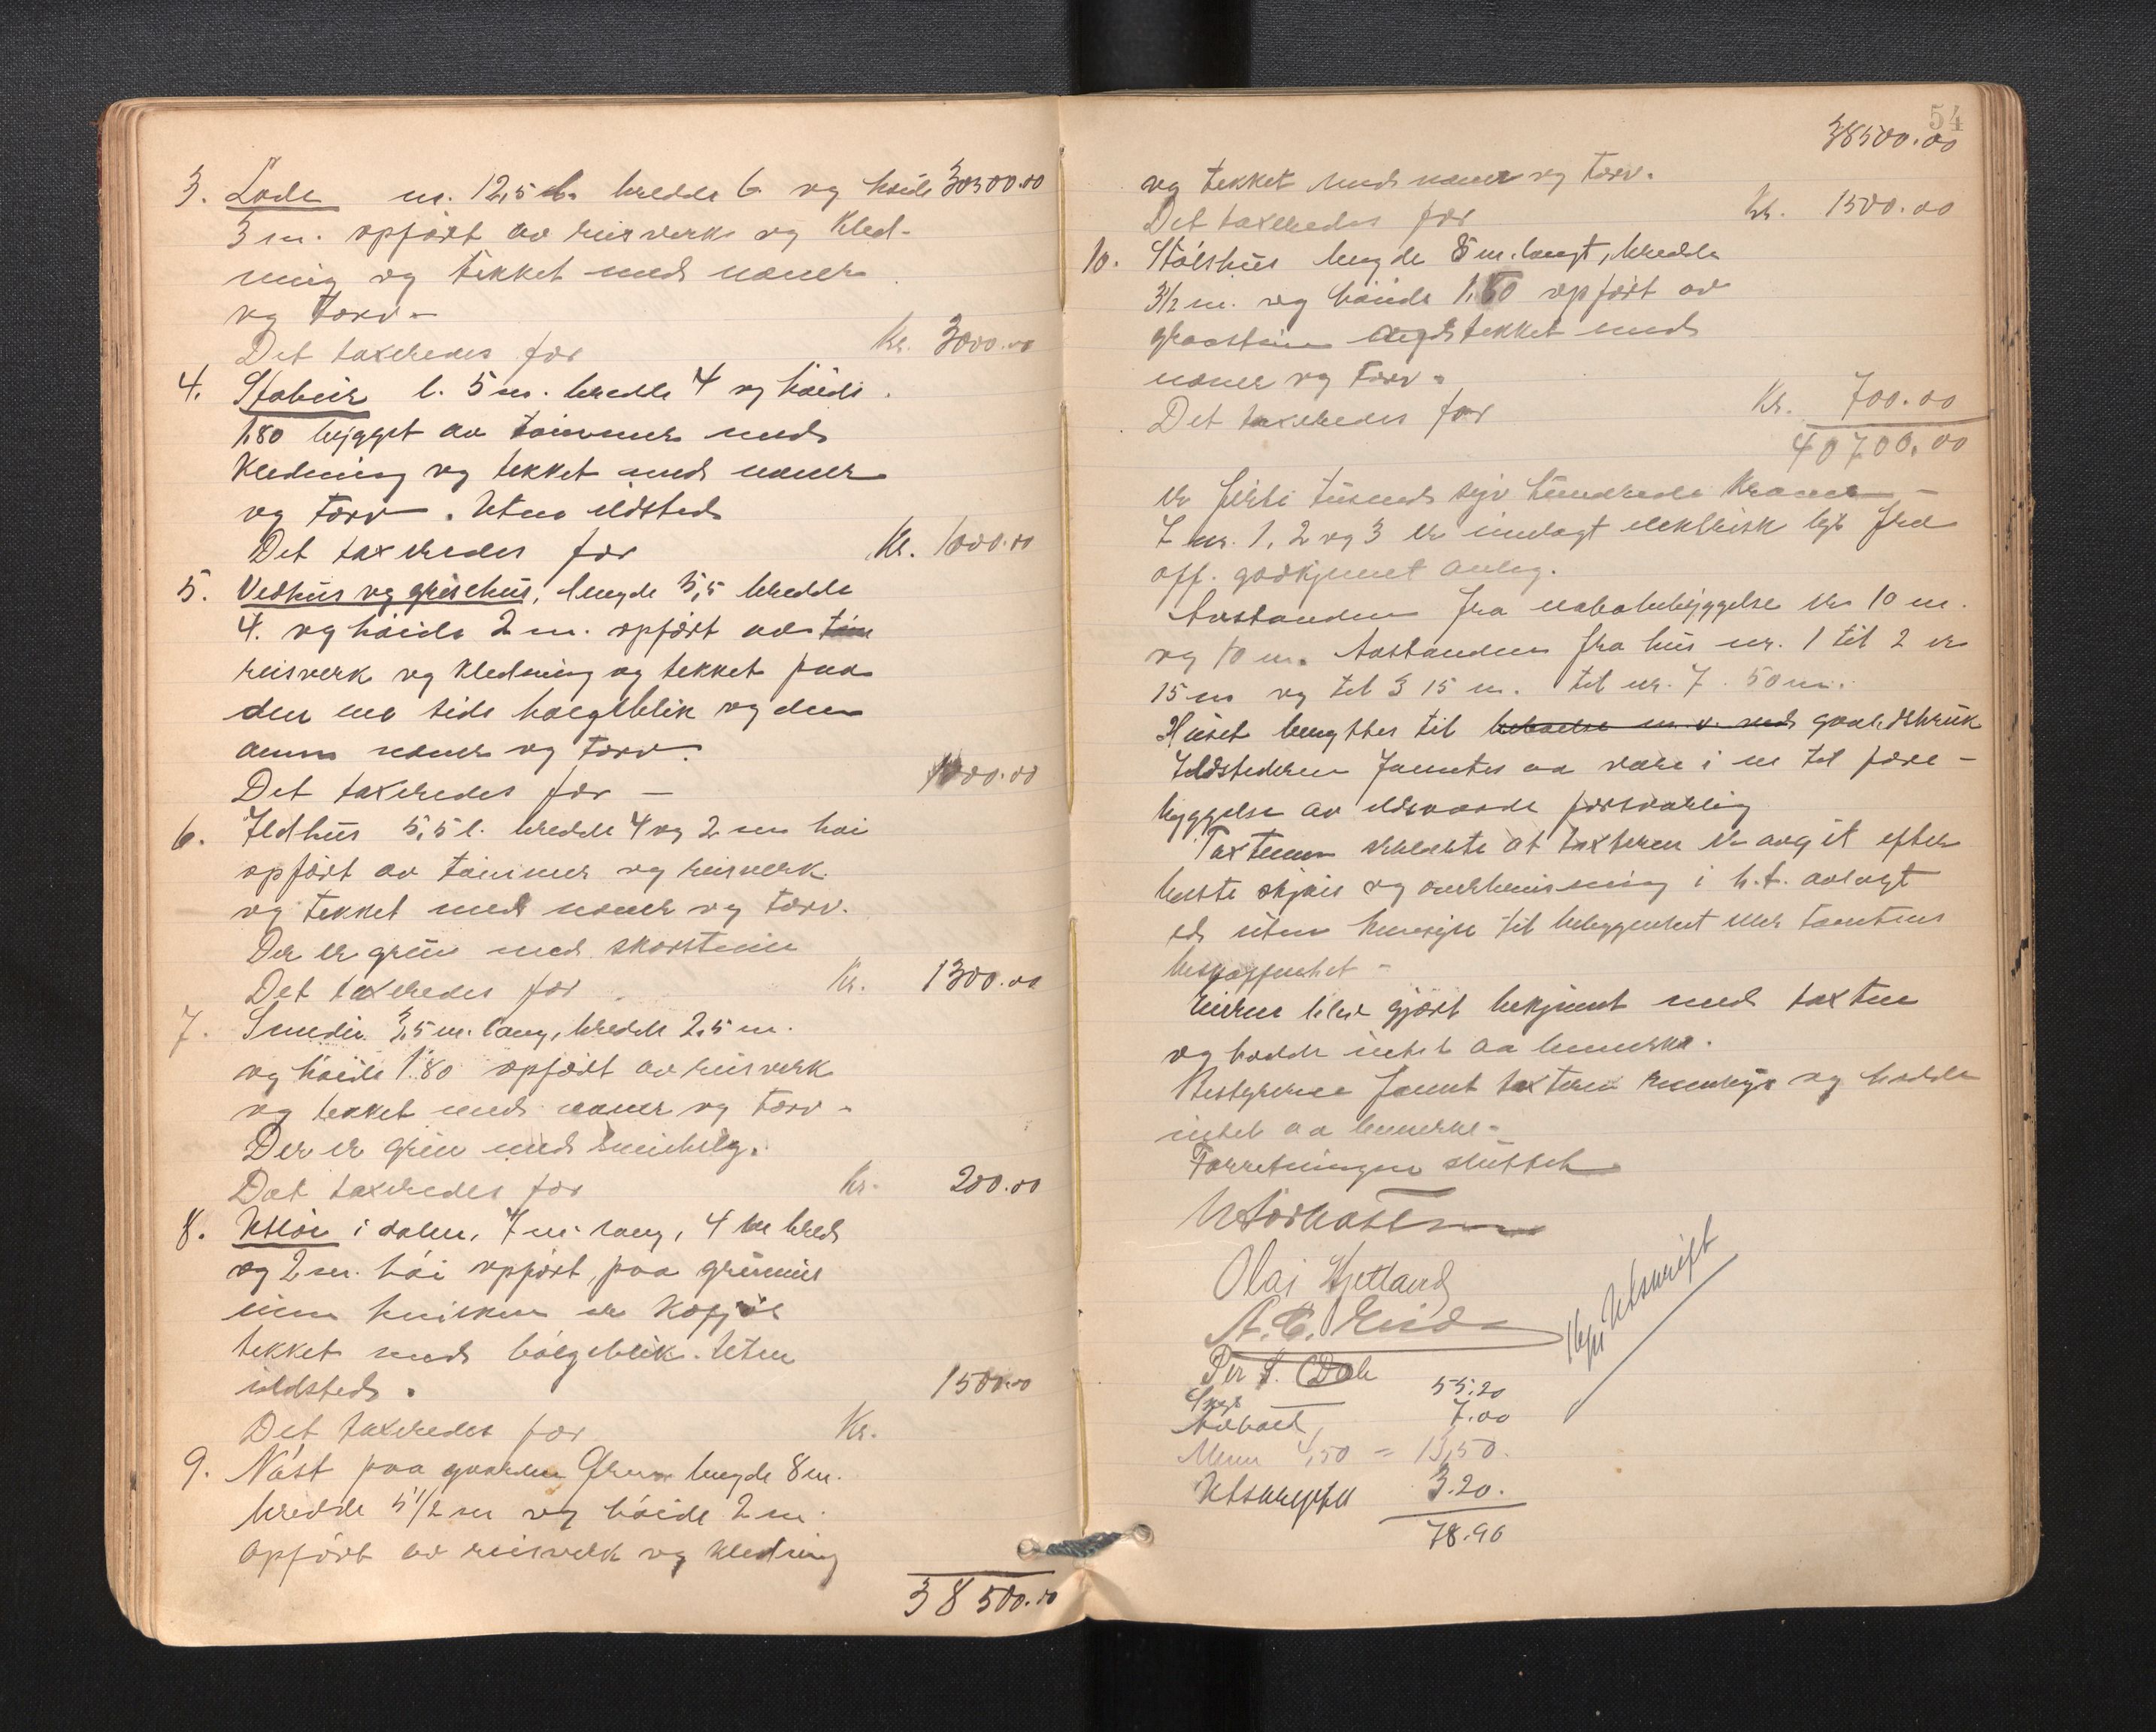 3. Løde m. 12,5 l. bredde 6 og høide 30500.00
3 m. opført av reisverk og kled-
ning og tekket med næver
og torv.
Det taxeredes for Kr. 3000.00
4. Stabur l. 5 m. bredde 4 og høide
1,80 bygget av tømmer med
kledning og tekket med næver
og torv. Uten ildsted
Det taxeredes for Kr. 1000.00
5. Vedhus og grisehus, lengde 5,5 bredde
4. og høide 2 m. opført av töm
reisverk og kledning og tekket paa
den ene side bølgeblik og den
annen næver og torv.
Det taxeredes for — 1000.00
6. Ildhus 5,5 l. bredde 4 og 2 m høi
opført av tømmer og reisverk
og tekket med næver og torv.
Der er grue med skorstein
Det taxeredes for Kr. 1300.00
7. Smedie 3,5 m. lang, bredde 2,5 m.
og høide 1.80 opført av reisverk
og tekket med næver og torv.
Der er grue med
Det taxeredes for Kr. 200.00
8. Utløe i dalen, 7 m. lang, 4 m bred
og 2 m. høi opført paa grunnmur
tekket med bølgeblik. Uten
ildsted. 1500.00
Det taxeredes for Kr.
9. Nøst paa gaarden lengde 8 m.
bredde 5 1/2 m og høide 2 m.
opført av reisverk og kledning
38500.00
54
38500.00
og tekket med næver og torv.
Det taxeredes for kr. 1500.00
10. Stølshus lengde 8 m. langt, bredde
3 1/2 m. og høide 1,80 opført av
graastein og tekket med
næver og torv.
Det taxeredes for Kr. 700.00
40700.00
er firti tusend syv hundrede kroner —
I nr. 1, 2 og 3 er innlagt elektrisk lys fra
off. godkjennt anleg.
Avstanden fra nabobebyggelse er 10 m.
og 10 m. Avstanden fra hus nr. 1 til 2 er
15 m og til 3 15 m. til nr. 7 50 m.
Huset benyttes til beboelse m.v. ved gaardsbruk
Ildstederne fantes aa være i en til fore-
byggelse av ildsvaade forsvarlig
Taxtmenn erklærte at taxteren er avgit efter
beste skjøn og overbevisning i h.t. avlagt
ed uten hensyn til beliggenhet eller tomtens
beskaffenhet —
Eieren blev gjort bekjennt med taxten
og hadde intet aa bemerke.
Bestyreren fannt taxteren rimelig og hadde
intet aa bemerke.
Forretningen sluttet
Olai Hjetland
A. E. Eide
Per S. Dale
Utskrift
55.20
7.00
Menn 4,50 = 13,50.
Utskrifter 3.20.
78.90